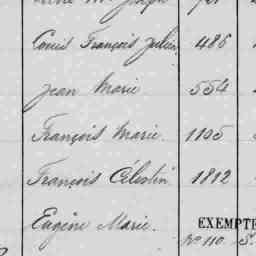 Louis François Julien 486
Jean Marie 554
François Marie. 1105
François Célestin 1812
Eugène Marie. EXEMPTE
No 110. S.